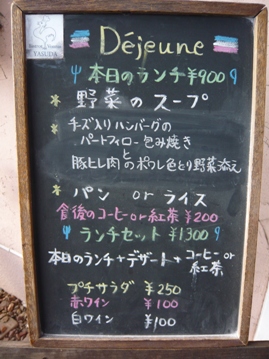 YASUDA
Déjeune
本日のランチ ¥900
* 野菜のスープ
* チーズ入りハンバーグの
パートフィロー包み焼き
と
豚ヒレ肉のポワレ色とり野菜添え
* パン or ライス
食後のコーヒー or 紅茶 ¥200
ランチセット ¥1300
本日のランチ + デザート + コーヒー or 紅茶
プチサラダ ¥250
赤ワイン ¥100
白ワイン ¥100